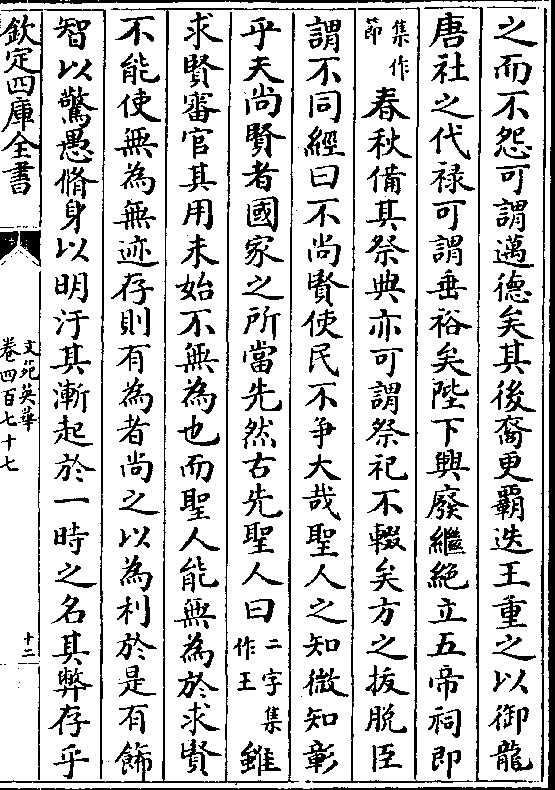 之而不怨可謂邁德矣其後裔更霸迭王重之以御龍
唐社之代禄可謂垂裕矣陛下興廢繼絶立五帝祠即
集作
節
春秋備其祭典亦可謂祭祀不輟矣方之拔脱臣
謂不同經曰不尚賢使民不争大哉聖人之知微知彰
乎夫尚賢者國家之所當先然古先聖人曰
二字集
作王
雖
求賢審官其用未始不無為也而聖人能無為於求賢
不能使無為無迹存則有為者尚之以為利於是有飾
智以驚愚脩身以明汙其漸起於一時之名其弊存乎
欽定四庫全書
文苑英華
卷四百七十七
十二